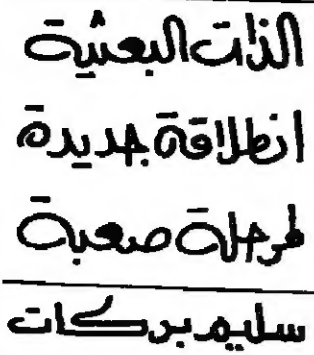 الذات البعثية
انطلاقة جديدة
لمرحلة صعبة
سليم بركات